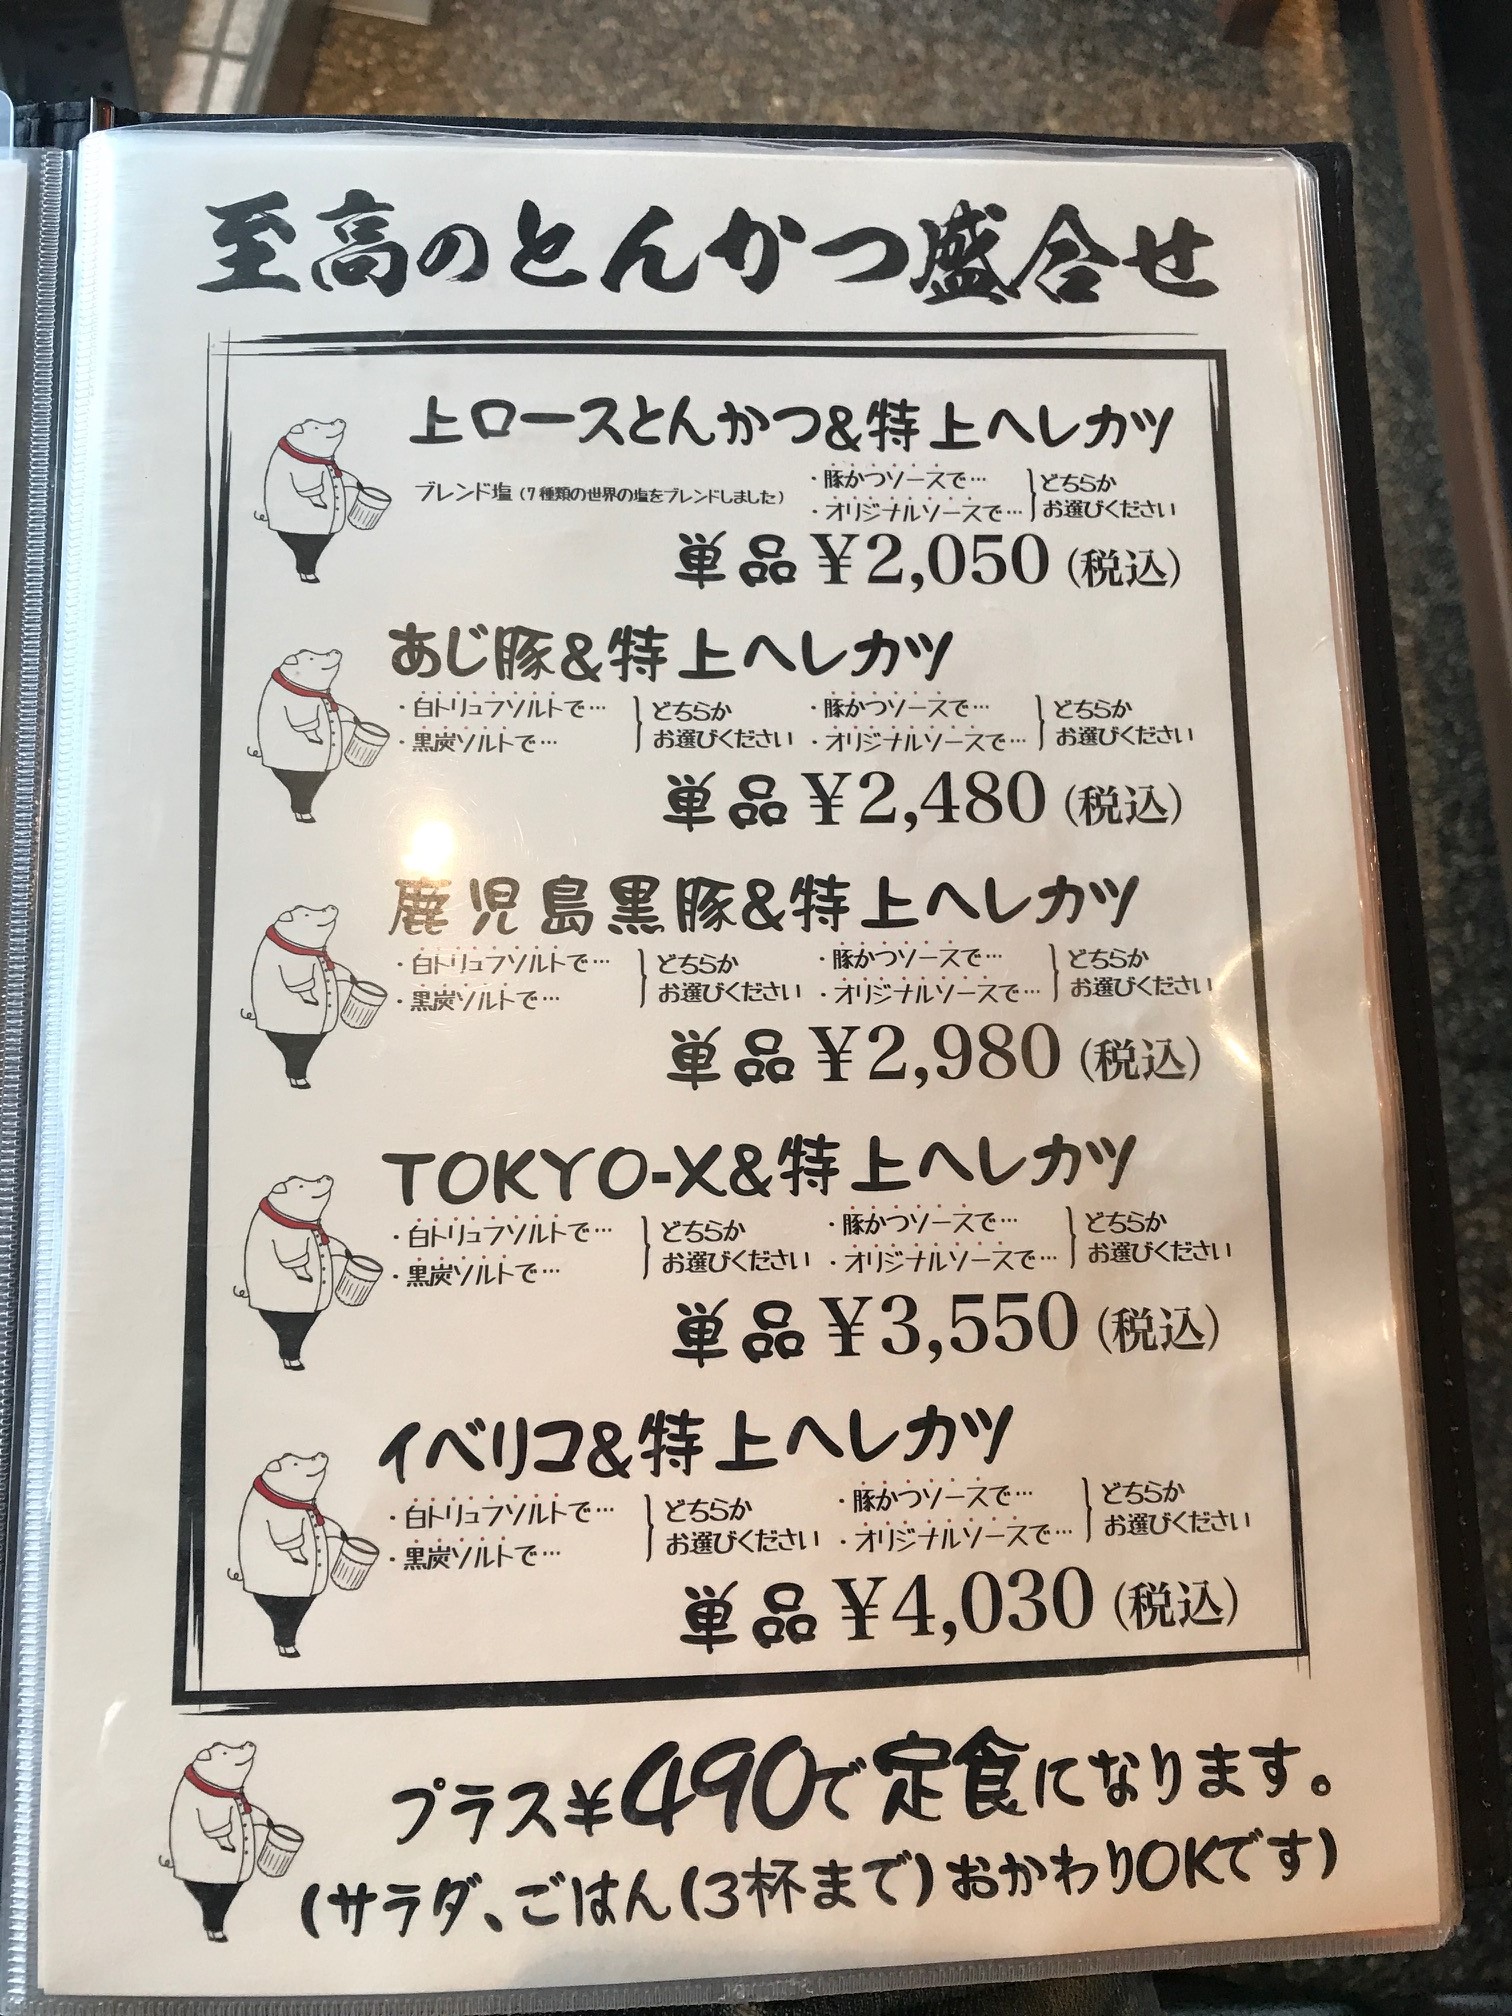 至高のとんかつ盛合せ
上ロースとんかつ&特上ヘレカツ
ブレンド塩(7種類の世界の塩をブレンドしました)
・豚かつソースで…
・オリジナルソースで…
どちらか
お選びください
単品¥2,050(税込)
あじ豚&特上ヘレカツ
・白トリュフソルトで…
・黒炭ソルトで…
どちらか
お選びください
・豚かつソースで…
・オリジナルソースで…
どちらか
お選びください
単品¥2,480(税込)
鹿児島黒豚&特上ヘレカツ
・白トリュフソルトで…
・黒炭ソルトで…
どちらか
お選びください
・豚かつソースで…
・オリジナルソースで…
どちらか
お選びください
単品¥2,980(税込)
TOKYO-X&特上ヘレカツ
・白トリュフソルトで…
・黒炭ソルトで…
どちらか
お選びください
・豚かつソースで…
・オリジナルソースで…
どちらか
お選びください
単品¥3,550(税込)
イベリコ&特上ヘレカツ
・白トリュフソルトで…
・黒炭ソルトで…
どちらか
お選びください
・豚かつソースで…
・オリジナルソースで…
どちらか
お選びください
単品¥4,030(税込)
プラス¥490で定食になります。
(サラダ、ごはん(3杯まで)おかわりOKです)